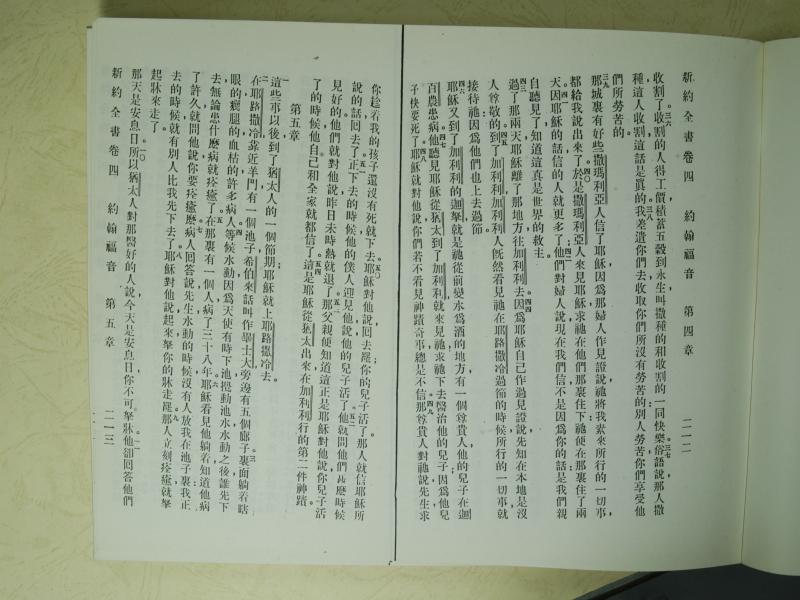 新約全書卷四　約翰福音　第四章　二一二
三六
收割了收割的人得工價積蓄五穀到永生叫撒種的和收割的一同快樂俗語說那人撒
三七
種這人收割這話是眞的我差遣你們去收取你們所沒有勞苦的別人勞苦你們享受他
三八
們所勞苦的
三九
那城裏有好些撒瑪利亞人信了耶穌因爲那婦人作見證說祂將我素來所行的一切事
四〇
都給我說出來了於是撒瑪利亞人來見耶穌求祂在他們那裏住下祂便在那裏住了兩
四一
天因耶穌的話信的人就更多了他們對婦人說現在我們信不是因爲你的話是我們親
四二
自聽見了知道這眞是世界的救主
四三
過了那兩天耶穌離了那地方往加利利去因爲耶穌自己作過見證說先知在本地是沒
四四
人尊敬的到了加利利加利利人旣然看見祂在耶路撒冷過節的時候所行的一切事就
四五
接待祂因爲他們也上去過節
四六
耶穌又到了加利利的迦拏就是祂從前變水爲酒的地方有一個尊貴人他的兒子在迦
四七
百農患病他聽見耶穌從猶太到了加利利就來見祂求祂下去醫治他的兒子因爲他兒
四八
子快要死了耶穌就對他說你們若不看見神蹟奇事總是不信那尊貴人對祂說先生求
四九
你趁着我的孩子還沒有死就下去耶穌對他說回去罷你的兒子活了那人就信耶穌所
五〇
說的話回去了正下去的時候他的僕人迎見他說他的兒子活了他就問他們甚麽時候
五一
見好的他們就對他說昨日未時熱就退了那父親便知道這正是耶穌對他說你兒子活
五二
五三
了的時候他自己和全家就都信了這是耶穌從猶太出來在加利利行的第二件神蹟
五四
第五章
一
這些事以後到了猶太人的一個節期耶穌就上耶路撒冷去
二
在耶路撒冷靠近羊門有一個池子希伯來話叫作畢士大旁邊有五個廊子裏面躺着瞎
三
眼的瘸腿的血枯的許多病人等候水動因爲天使有時下池攪動池水水動之後誰先下
四
去無論患什麽病就痊癒了在那裏有一個人病了三十八年耶穌看見他躺着知道他病
五
六
了許久就問他說你要痊癒麽病人回答說先生水動的時候沒有人放我在池子裏我正
七
去的時候就有別人比我先下去了耶穌對他說起來拏你的牀走罷那人立刻痊癒就拏
八
九
起牀來走了
那天是安息日所以猶太人對那醫好的人說今天是安息日你不可拏牀他卻回答他們
一〇
新約全書卷四　約翰福音　第五章　二一三